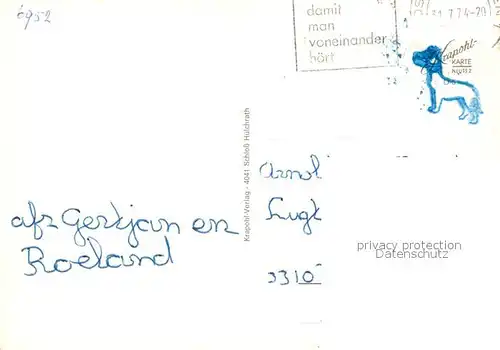 6952
damit
man
voneinander
hört
31.7.74-20
Krapohl-
KARTE
Krapohl-Verlag - 4041 Schloß Hülchrath
Arnol
Lugt
3310
afz Gertjan en
Roeland
privacy protection
Datenschutz